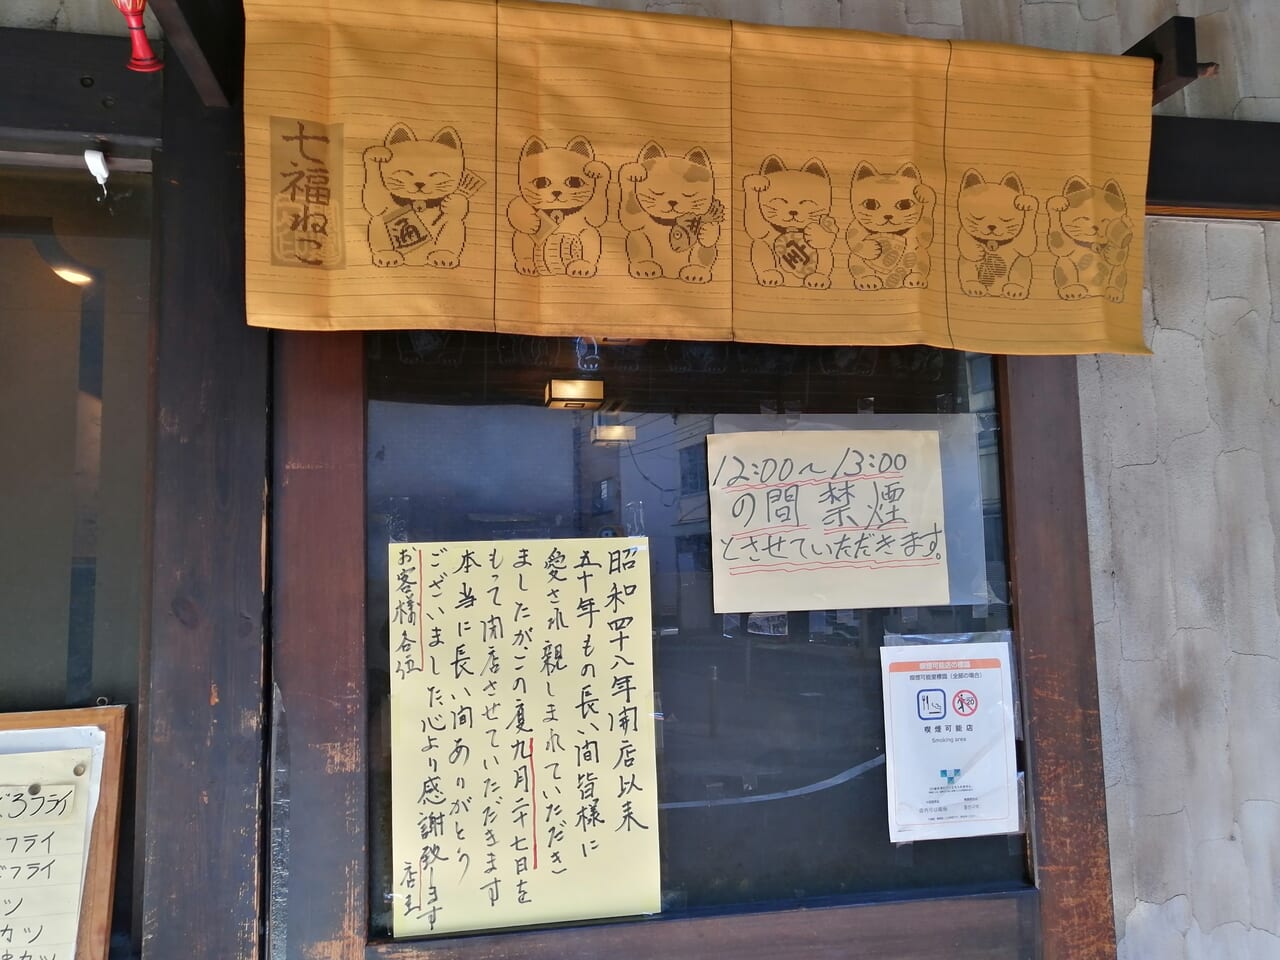 七福ねこ
通
12:00〜13:00
の間 禁煙
とさせていただきます。
昭和四十八年開店以来
五十年もの長い間皆様に
愛され親しまれていただき
ましたが、この度九月二十七日を
もって閉店させていただきます
本当に長い間ありがとう
ございました心より感謝致します
お客様各位
店主
喫煙可能店の標識
喫煙可能室標識(全部の場合)
20
喫煙可能店
Smoking area
フライ
フライ
フライ
ツ
カツ
カツ